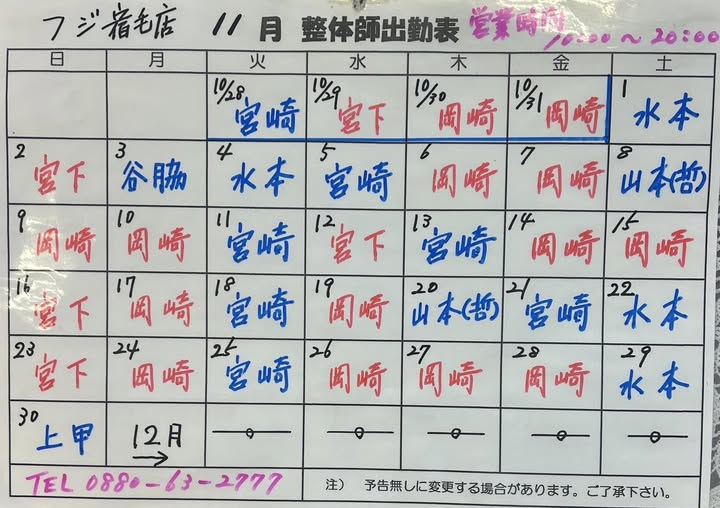 フジ宿毛店 11月 整体師出勤表 営業時間 10:00～20:00
日 月 火 水 木 金 土
10/28 宮崎 10/29 宮下 10/30 岡崎 10/31 岡崎 1 水本
2 宮下 3 谷脇 4 水本 5 宮崎 6 岡崎 7 岡崎 8 山本(哲)
9 岡崎 10 岡崎 11 宮崎 12 宮下 13 宮崎 14 岡崎 15 岡崎
16 宮下 17 岡崎 18 宮崎 19 岡崎 20 山本(哲) 21 宮崎 22 水本
23 宮下 24 岡崎 25 宮崎 26 岡崎 27 岡崎 28 岡崎 29 水本
30 上甲 12月 →
TEL 0880-63-2777 注） 予告無しに変更する場合があります。ご了承下さい。